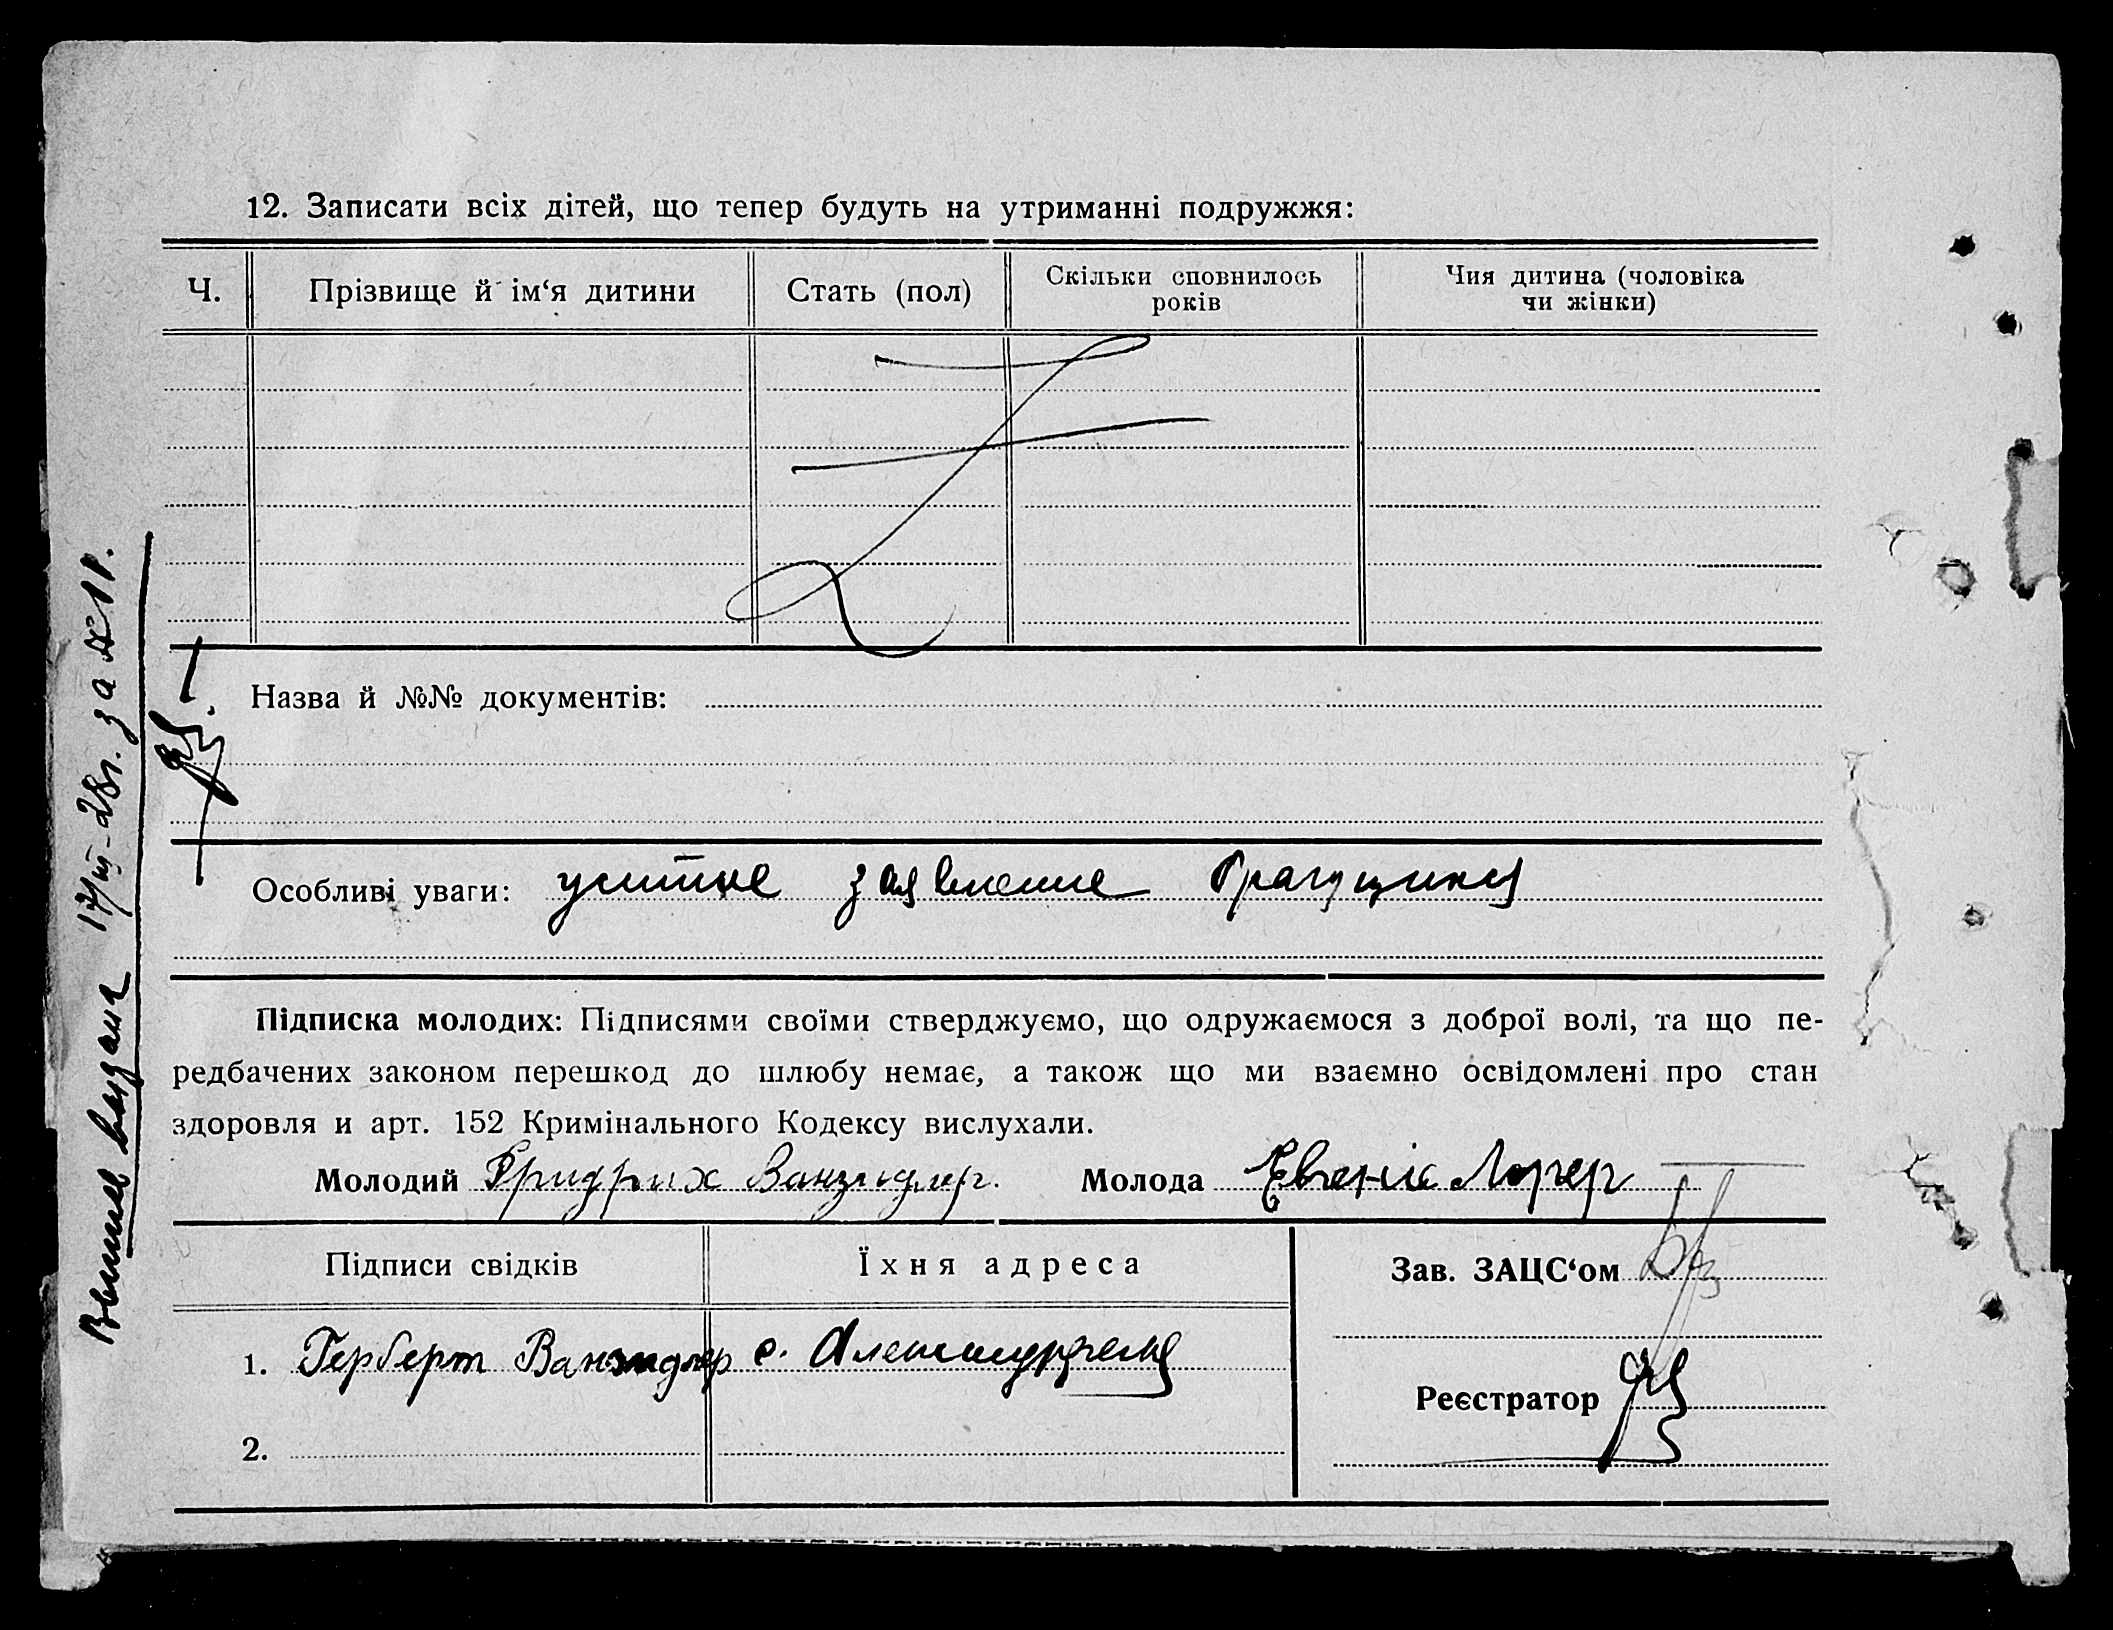 12. Записати всіх дітей, що тепер будуть на утриманні подружжя:
Ч.
Прізвище й ім‘я дитини
Стать (пол)
Скільки сповнилось
років
Чия дитина (чоловіка
чи жінки)
Назва й №№ документів:
Особливі уваги: устное заявление
Підписка молодих: Підписями своїми стверджуємо, що одружаємося з доброї волі, та що пе-
редбачених законом перешкод до шлюбу немає, а також що ми взаємно освідомлені про стан
здоровля и арт. 152 Кримінального Кодексу вислухали.
Молодий Фридрих Ванзидлер. Молода Евгенія Лорер
Підписи свідків
Їхня адреса
Зав. ЗАЦС‘ом
1. Герберт Ванзидлер с.
Реєстратор
2.
Выпись выдана 17/III-28г. за №